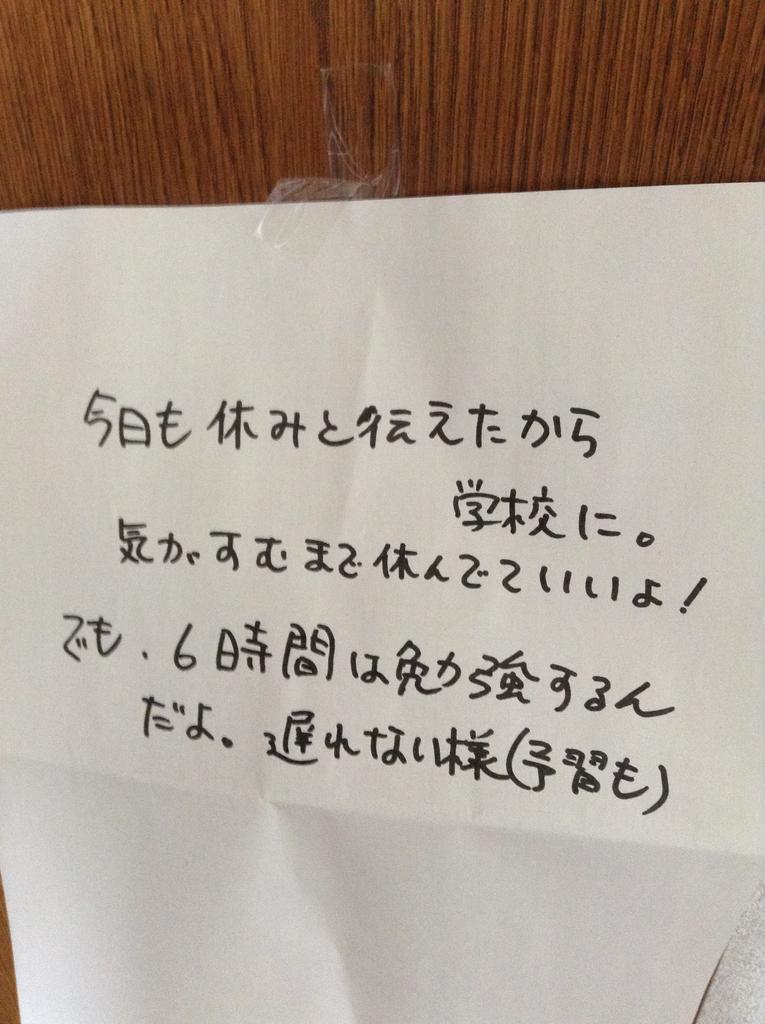 今日も休みと伝えたから
学校に。
気がすむまで休んでていいよ!
でも、6時間は勉強するん
だよ。遅れない様(予習も)